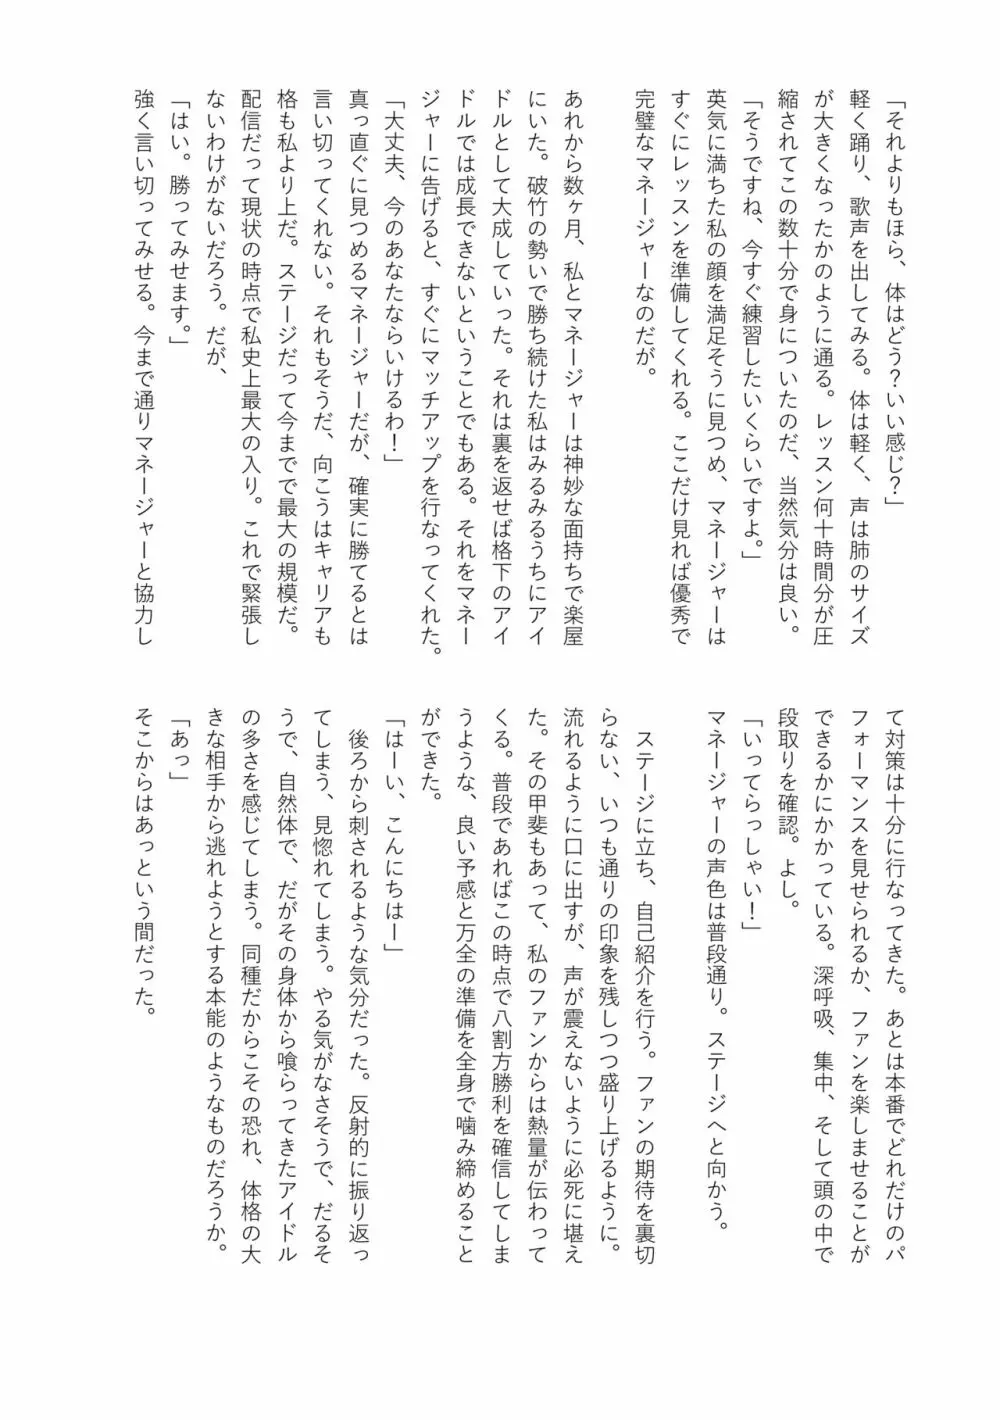 「それよりもほら、体はどう？いい感じ？」
軽く踊り、歌声を出してみる。体は軽く、声は肺のサイズ
が大きくなったかのように通る。レッスン何十時間分が圧
縮されてこの数十分で身についたのだ、当然気分は良い。
「そうですね、今すぐ練習したいくらいですよ。」
英気に満ちた私の顔を満足そうに見つめ、マネージャーは
すぐにレッスンを準備してくれる。ここだけ見れば優秀で
完璧なマネージャーなのだが。
あれから数ヶ月、私とマネージャーは神妙な面持ちで楽屋
にいた。破竹の勢いで勝ち続けた私はみるみるうちにアイ
ドルとして大成していった。それは裏を返せば格下のアイ
ドルでは成長できないということでもある。それをマネー
ジャーに告げると、すぐにマッチアップを行なってくれた。
「大丈夫、今のあなたならいけるわ！」
真っ直ぐに見つめるマネージャーだが、確実に勝てるとは
言い切ってくれない。それもそうだ、向こうはキャリアも
格も私より上だ。ステージだって今までで最大の規模だ。
配信だって現状の時点で私史上最大の入り。これで緊張し
ないわけがないだろう。だが、
「はい。勝ってみせます。」
強く言い切ってみせる。今まで通りマネージャーと協力し
て対策は十分に行なってきた。あとは本番でどれだけのパ
フォーマンスを見せられるか、ファンを楽しませることが
できるかにかかっている。深呼吸、集中、そして頭の中で
段取りを確認。よし。
「いってらっしゃい！」
マネージャーの声色は普段通り。ステージへと向かう。
ステージに立ち、自己紹介を行う。ファンの期待を裏切
らない、いつも通りの印象を残しつつ盛り上げるように。
流れるように口に出すが、声が震えないように必死に堪え
た。その甲斐もあって、私のファンからは熱量が伝わって
くる。普段であればこの時点で八割方勝利を確信してしま
うような、良い予感と万全の準備を全身で噛み締めること
ができた。
「はーい、こんにちはー」
後ろから刺されるような気分だった。反射的に振り返っ
てしまう、見惚れてしまう。やる気がなさそうで、だるそ
うで、自然体で、だがその身体から喰らってきたアイドル
の多さを感じてしまう。同種だからこその恐れ、体格の大
きな相手から逃れようとする本能のようなものだろうか。
「あっ」
そこからはあっという間だった。